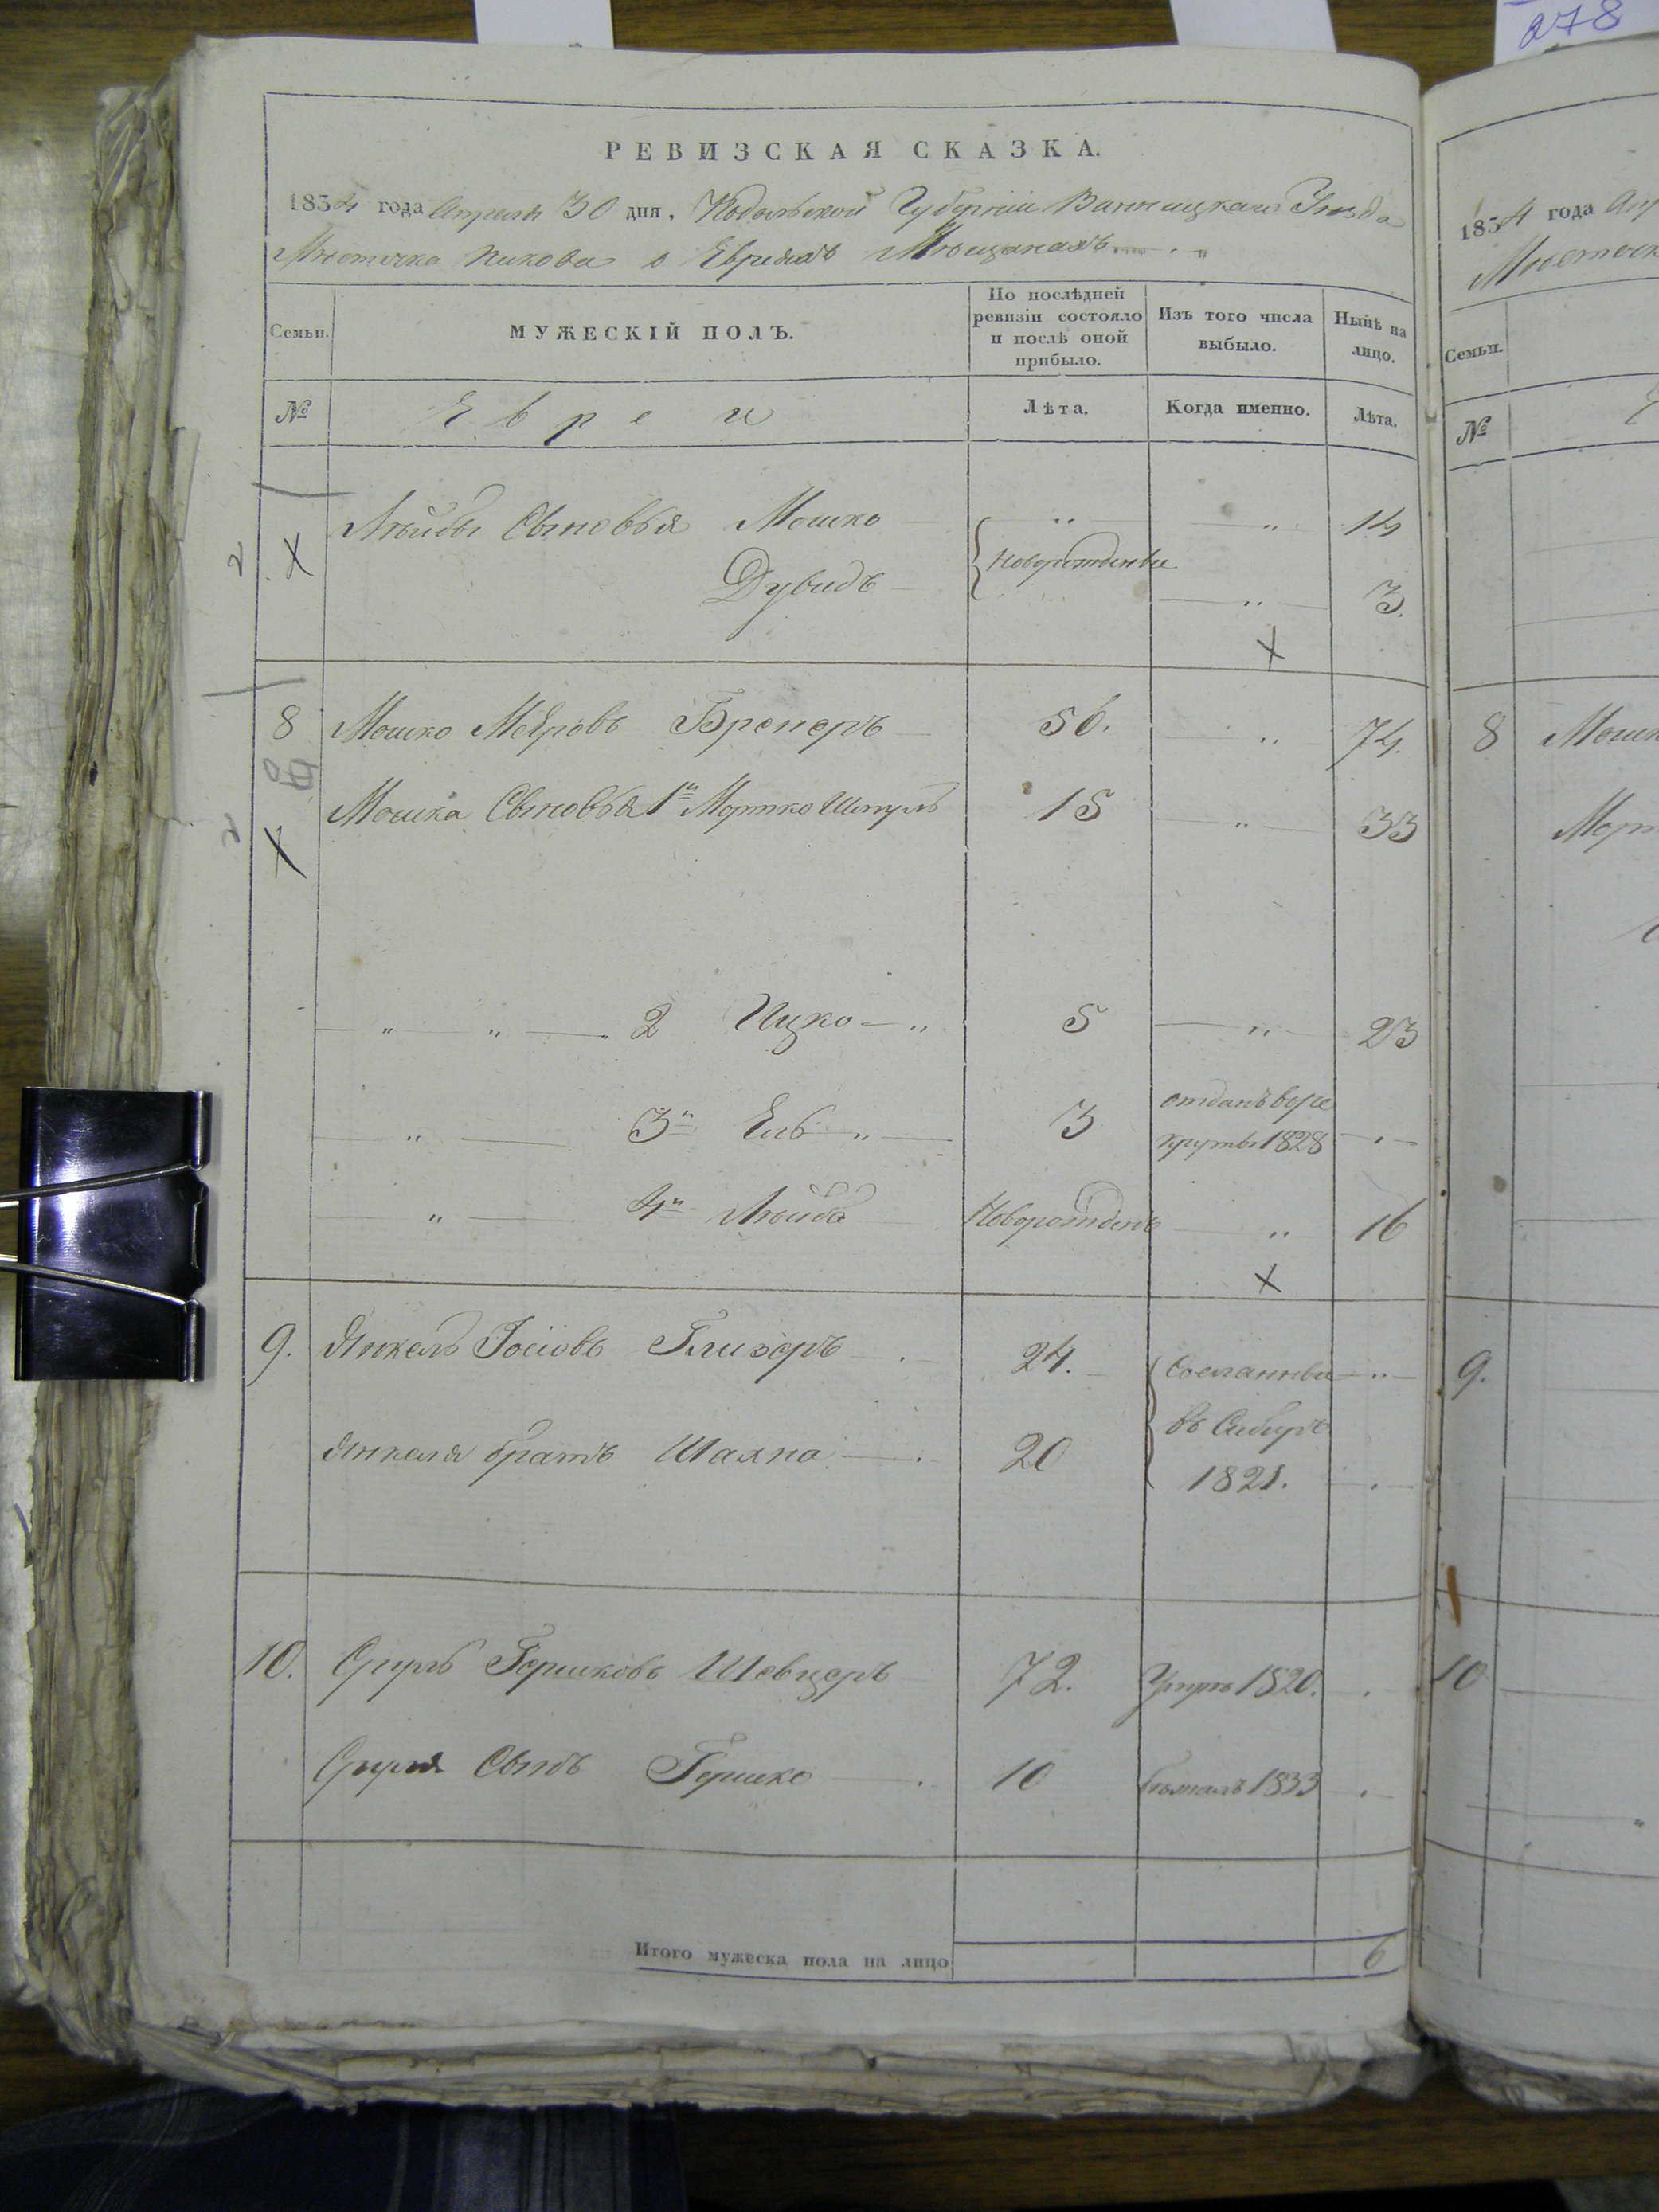 278
РЕВИЗСКАЯ СКАЗКА.
1834 года Апреля 30 дня, Подольской Губерніи Винницкаго Уезда
Местечка Пикова о Евреяхъ Мещанахъ
Семьи.
МУЖЕСКІЙ ПОЛЪ.
По послѣдней ревизіи состояло и послѣ оной прибыло.
Изъ того числа выбыло.
Нынѣ на лицо.
№
Евреи
Лѣта.
Когда именно.
Лѣта.
Лейбы Сыновья Мошко " " 14
Новорожденные
Дувидъ " 3.
8 Мошко Меѣровъ Бренеръ 56. " 74.
Мошка Сыновья 1й Мортко Шмуль 15 " 33
" " 2 Ицко " 5 " 23
" 3й Ель " 3 отданъ в ре
круты 1828
" 4й Лейба Новорожденъ " 16
9. Янкель Іосіовъ Глизеръ 24. Сосланные "
въ Сибирь
Янкеля братъ Шаяна 20
1821.
10. Сруль Гершковъ Шевцеръ 72. Умръ 1820.
Сруля Сынъ Гершко 10 бѣжалъ 1833
Итого мужеска пола на лицо 6
1834 года Апр
Местечк
Семьи.
№
8 Мошк
Морт
9.
10